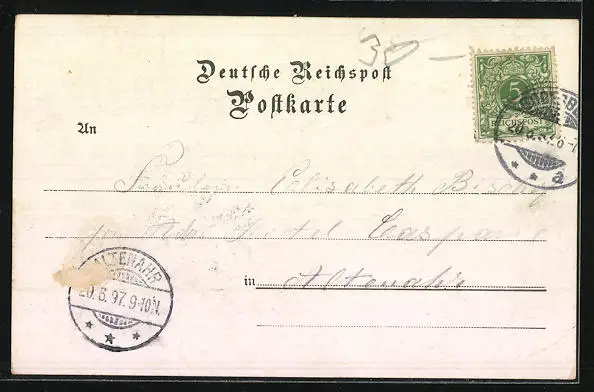 30 -
Deutsche Reichspost
Postkarte
5
REICHSPOST
20.6.97. 6-7
a
An
Fräulein Elisabeth
Hotel Caspari
in Altenahr
ALTENAHR
20.6.97. 9-10N.